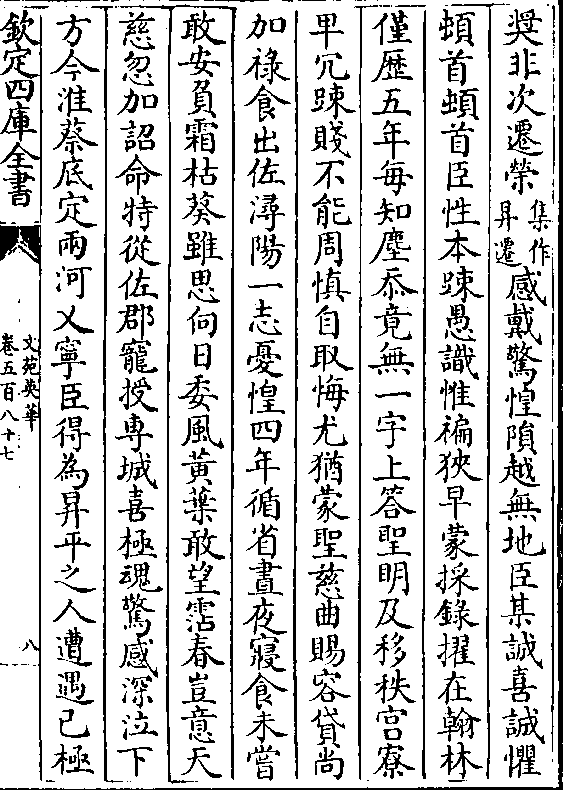 奨非次遷榮集作昇遷感戴驚惶隕越無地臣某誠喜誠懼
頓首頓首臣性本踈愚識惟褊狹早蒙採錄擢在翰林
僅歷五年每知塵忝竟無一字上答聖明及移秩宮寮
卑冗踈賤不能周慎自取悔尤猶蒙聖慈曲賜容貸尚
加祿食出佐潯陽一志憂惶四年循省晝夜寢食未嘗
敢安負霜枯葵雖思向日委風黃葉敢望霑春豈意天
慈忽加詔命特從佐郡寵授專城喜極魂驚感深泣下
方今淮蔡底定兩河乂寧臣得為昇平之人遭遇已極
欽定四庫全書
文苑英華
卷五百八十七
八